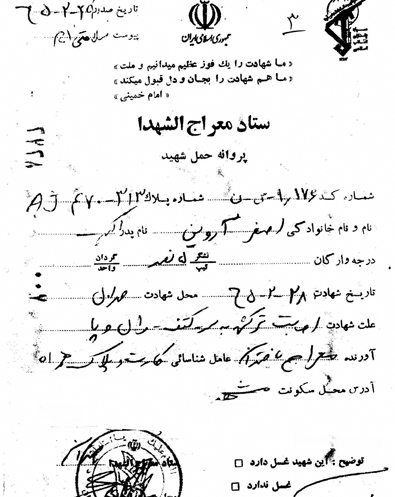 تاریخ صدور ۶۵-۲-۲۹
پیوست
۳
جمهوری اسلامی ایران
«ما شهادت را یک فوز عظیم میدانیم و ملت»
«ما هم شهادت را بجان و دل قبول میکند»
«امام خمینی»
ستاد معراج الشهدا
پروانه حمل شهید
شماره کد ۱۷۶ شماره پلاک
نام و نام خانوادگی اصغر نام پدر اکبر
درجه وارگان لشگر تیپ ۵ نصر گردان واحد
تاریخ شهادت ۶۵-۲-۲۸ محل شهادت
علت شهادت اصابت ترکش به سر کتف ران و پا
آورنده معراج باختران عامل شناسائی کارت و پلاک همراه
آدرس محل سکونت مشهد
توضیح: این شهید غسل دارد
غسل ندارد